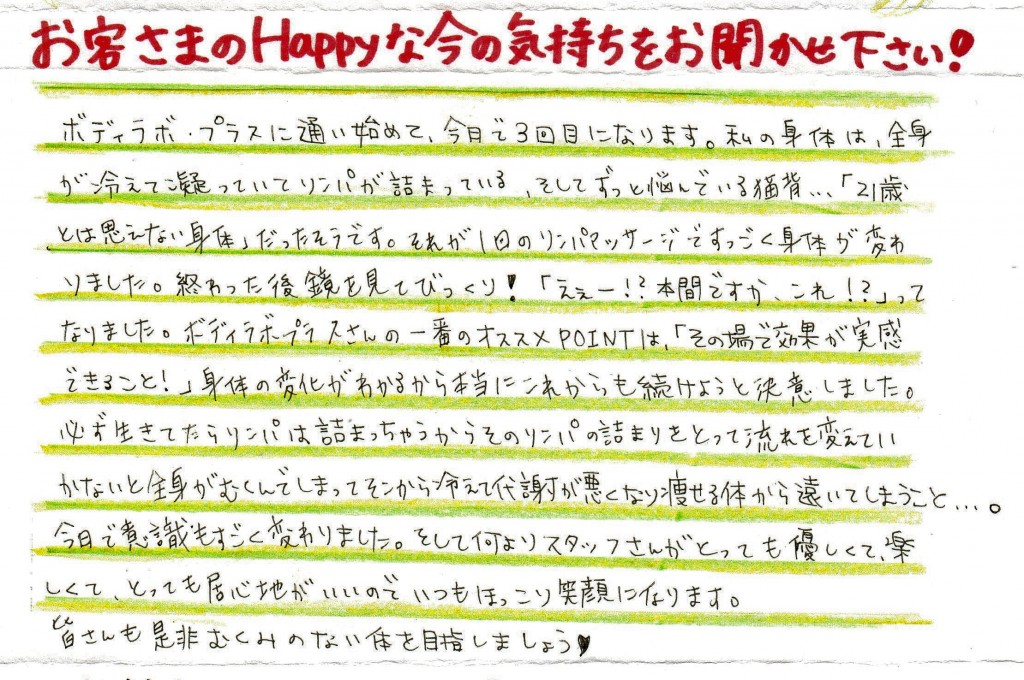 お客さまのHappyな今の気持ちをお聞かせ下さい!
ボディラボ・プラスに通い始めて、今日で3回目になります。私の身体は、全身
が冷えて凝っていてリンパが詰まっている、そしてずっと悩んでいる猫背…「21歳
とは思えない身体」だったそうです。それが1日のリンパマッサージですっごく身体が変わ
りました。終わった後鏡を見てびっくり!「ええー!?本間ですか、これ!?」って
なりました。ボディラボプラスさんの一番のオススメPOINTは、「その場で効果が実感
できること!」身体の変化がわかるから本当にこれからも続けようと決意しました。
必ず生きてたらリンパは詰まっちゃうからそのリンパの詰まりをとって流れを変えてい
かないと全身がむくんでしまってそこから冷えて代謝が悪くなり痩せる体から遠いてしまうこと…。
今日で意識もすごく変わりました。そして何よりスタッフさんがとっても優しくて、楽
しくて、とっても居心地がいいのでいつもほっこり笑顔になります。
皆さんも是非むくみのない体を目指しましょう♥